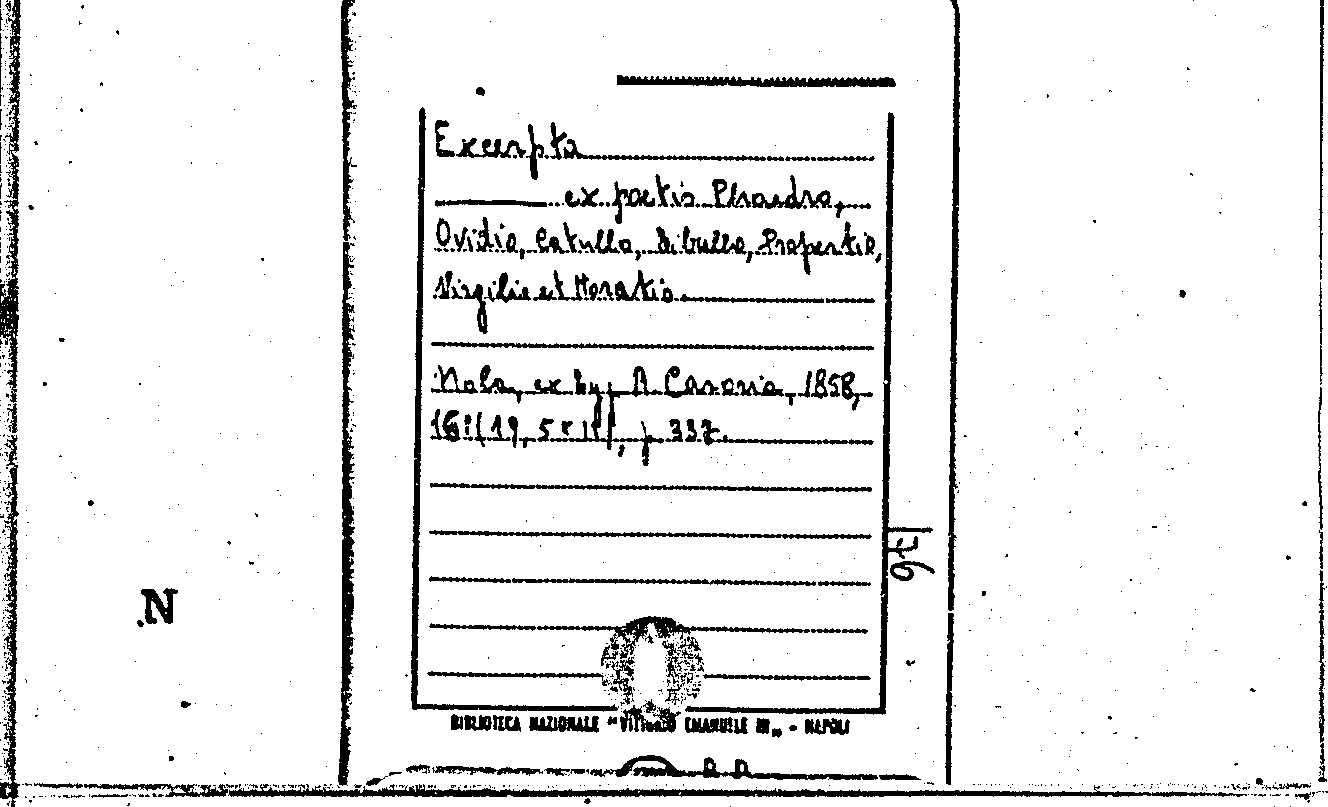 Excerpta
ex poetis Phaedro,
Ovidio, Catullo, Tibullo, Propertio,
Virgilio et Horatio.
Nola, ex typ. R. Casoria, 1858,
16i(19,5x11), p. 337.
N
BIBLIOTECA NAZIONALE "VITTORIO EMANUELE III„ - NAPOLI